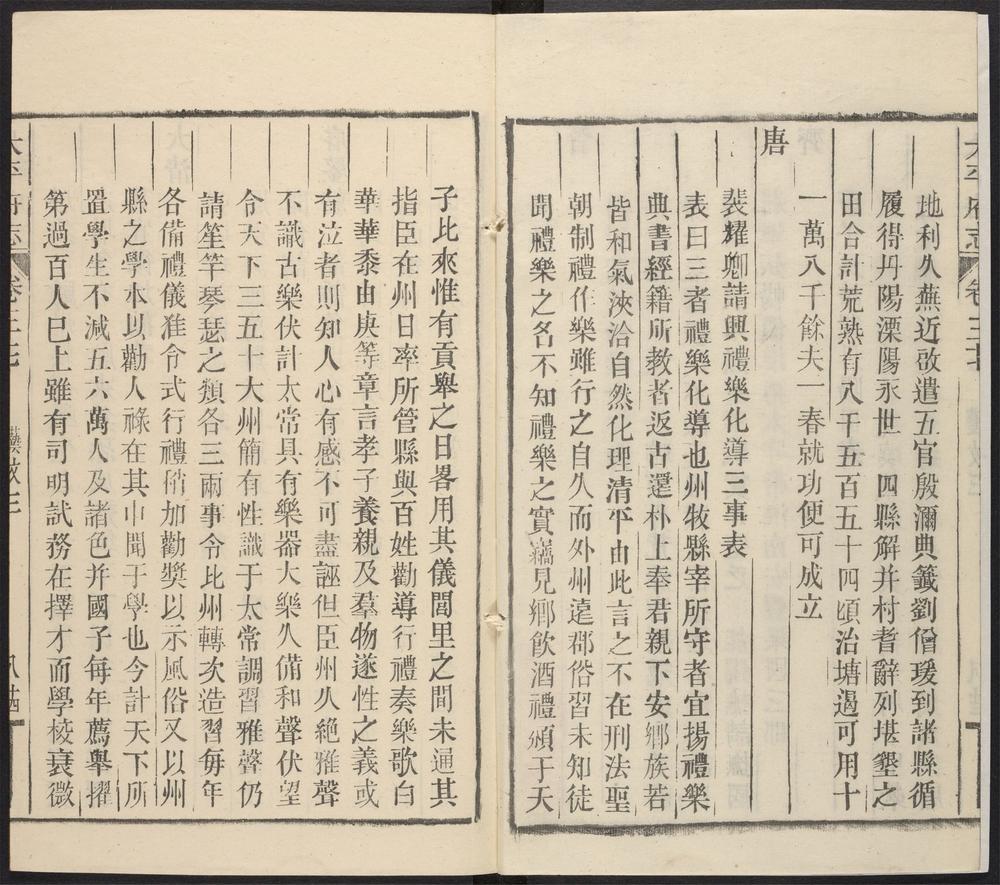 地利久蕪近啟遣五官殷濔典籤劉僧瑗到諸縣循
履得丹陽溧陽永世 四縣解并村耆辭列堪墾之
田合計荒熟有八千五百五十四頃治塘遏可用十
一萬八千餘夫一 春就功便可成立
唐
裴耀卿請興禮樂化導三事表
表曰三者禮樂化導也州牧縣宰所守者宜揚禮樂
典書經籍所教者返古還朴上奉君親下安鄉族若
皆和氣浹洽自然化理清平由此言之不在刑法聖
朝制禮作樂雖行之自久而外州遠郡俗習未知徒
聞禮樂之名不知禮樂之實竊見鄉飲酒禮頒于天
子比來惟有貢舉之日畧用其儀閭里之間未通其
指臣在州日率所管縣與百姓勸導行禮奏樂歌白
華華黍由庚等章言孝子養親及羣物遂性之義或
有泣者則知人心有感不可盡誣但臣州久絶雅聲
不識古樂伏計太常具有樂器大樂久備和聲伏望
令天下三五十大州簡有性識于太常調習雅聲仍
請笙竽琴瑟之類各三兩事令比州轉次造習每年
各備禮儀准令式行禮稍加勸獎以示風俗又以州
縣之學本以勸人祿在其中聞于學也今計天下所
置學生不減五六萬人及諸色并國子每年薦舉擢
第過百人巳上雖有司明試務在擇才而學校衰微
太平府志 卷三十七 藝文三